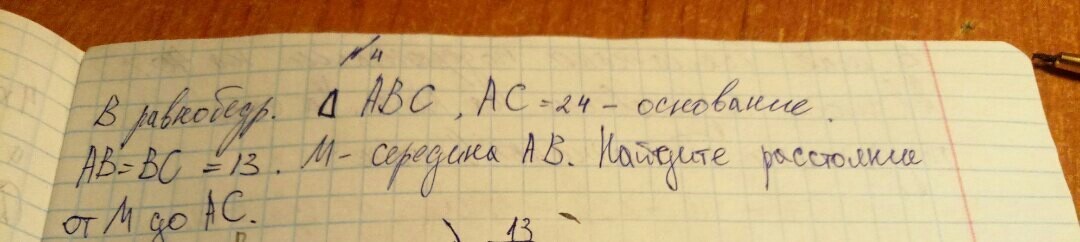 №4
В равнобедр. Δ ABC, AC = 24 - основание.
AB = BC = 13. M - середина AB. Найдите расстояние
от M до AC.
13